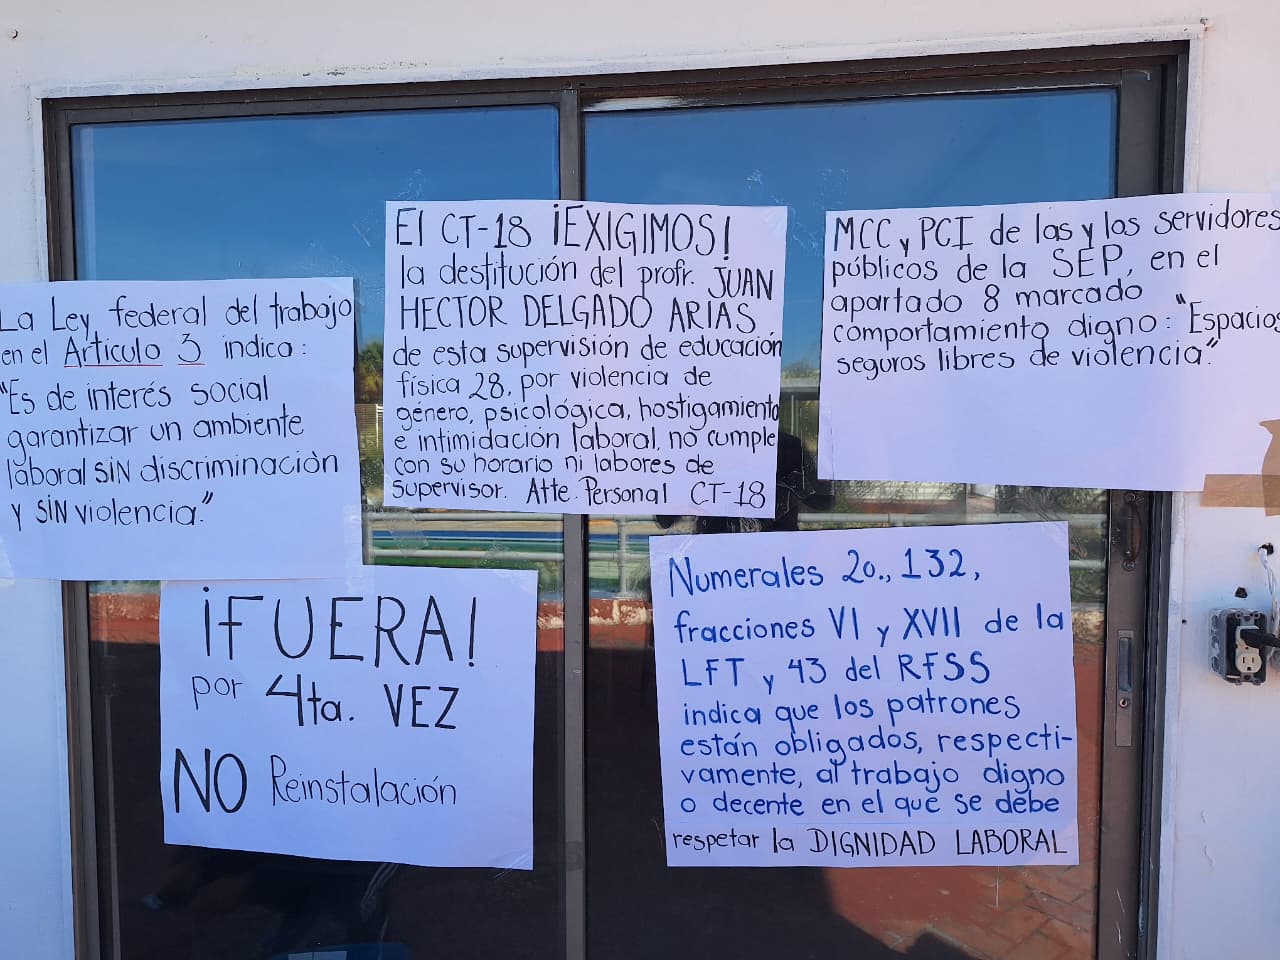 La Ley federal del trabajo
en el Artículo 3 indica:
"Es de interés social
garantizar un ambiente
laboral SIN discriminación
y SIN violencia."
El CT-18 ¡EXIGIMOS!
la destitución del profr. JUAN
HECTOR DELGADO ARIAS
de esta supervisión de educación
física 28, por violencia de
género, psicológica, hostigamiento
e intimidación laboral, no cumple
con su horario ni labores de
supervisor. Atte. Personal CT-18
MCC y PCI de las y los servidores
públicos de la SEP, en el
apartado 8 marcado
comportamiento digno: "Espacios
seguros libres de violencia."
¡FUERA!
por 4ta. VEZ
NO Reinstalación
Numerales 2o., 132,
fracciones VI y XVII de la
LFT y 43 del RFSS
indica que los patrones
están obligados, respecti-
vamente, al trabajo digno
o decente en el que se debe
respetar la DIGNIDAD LABORAL